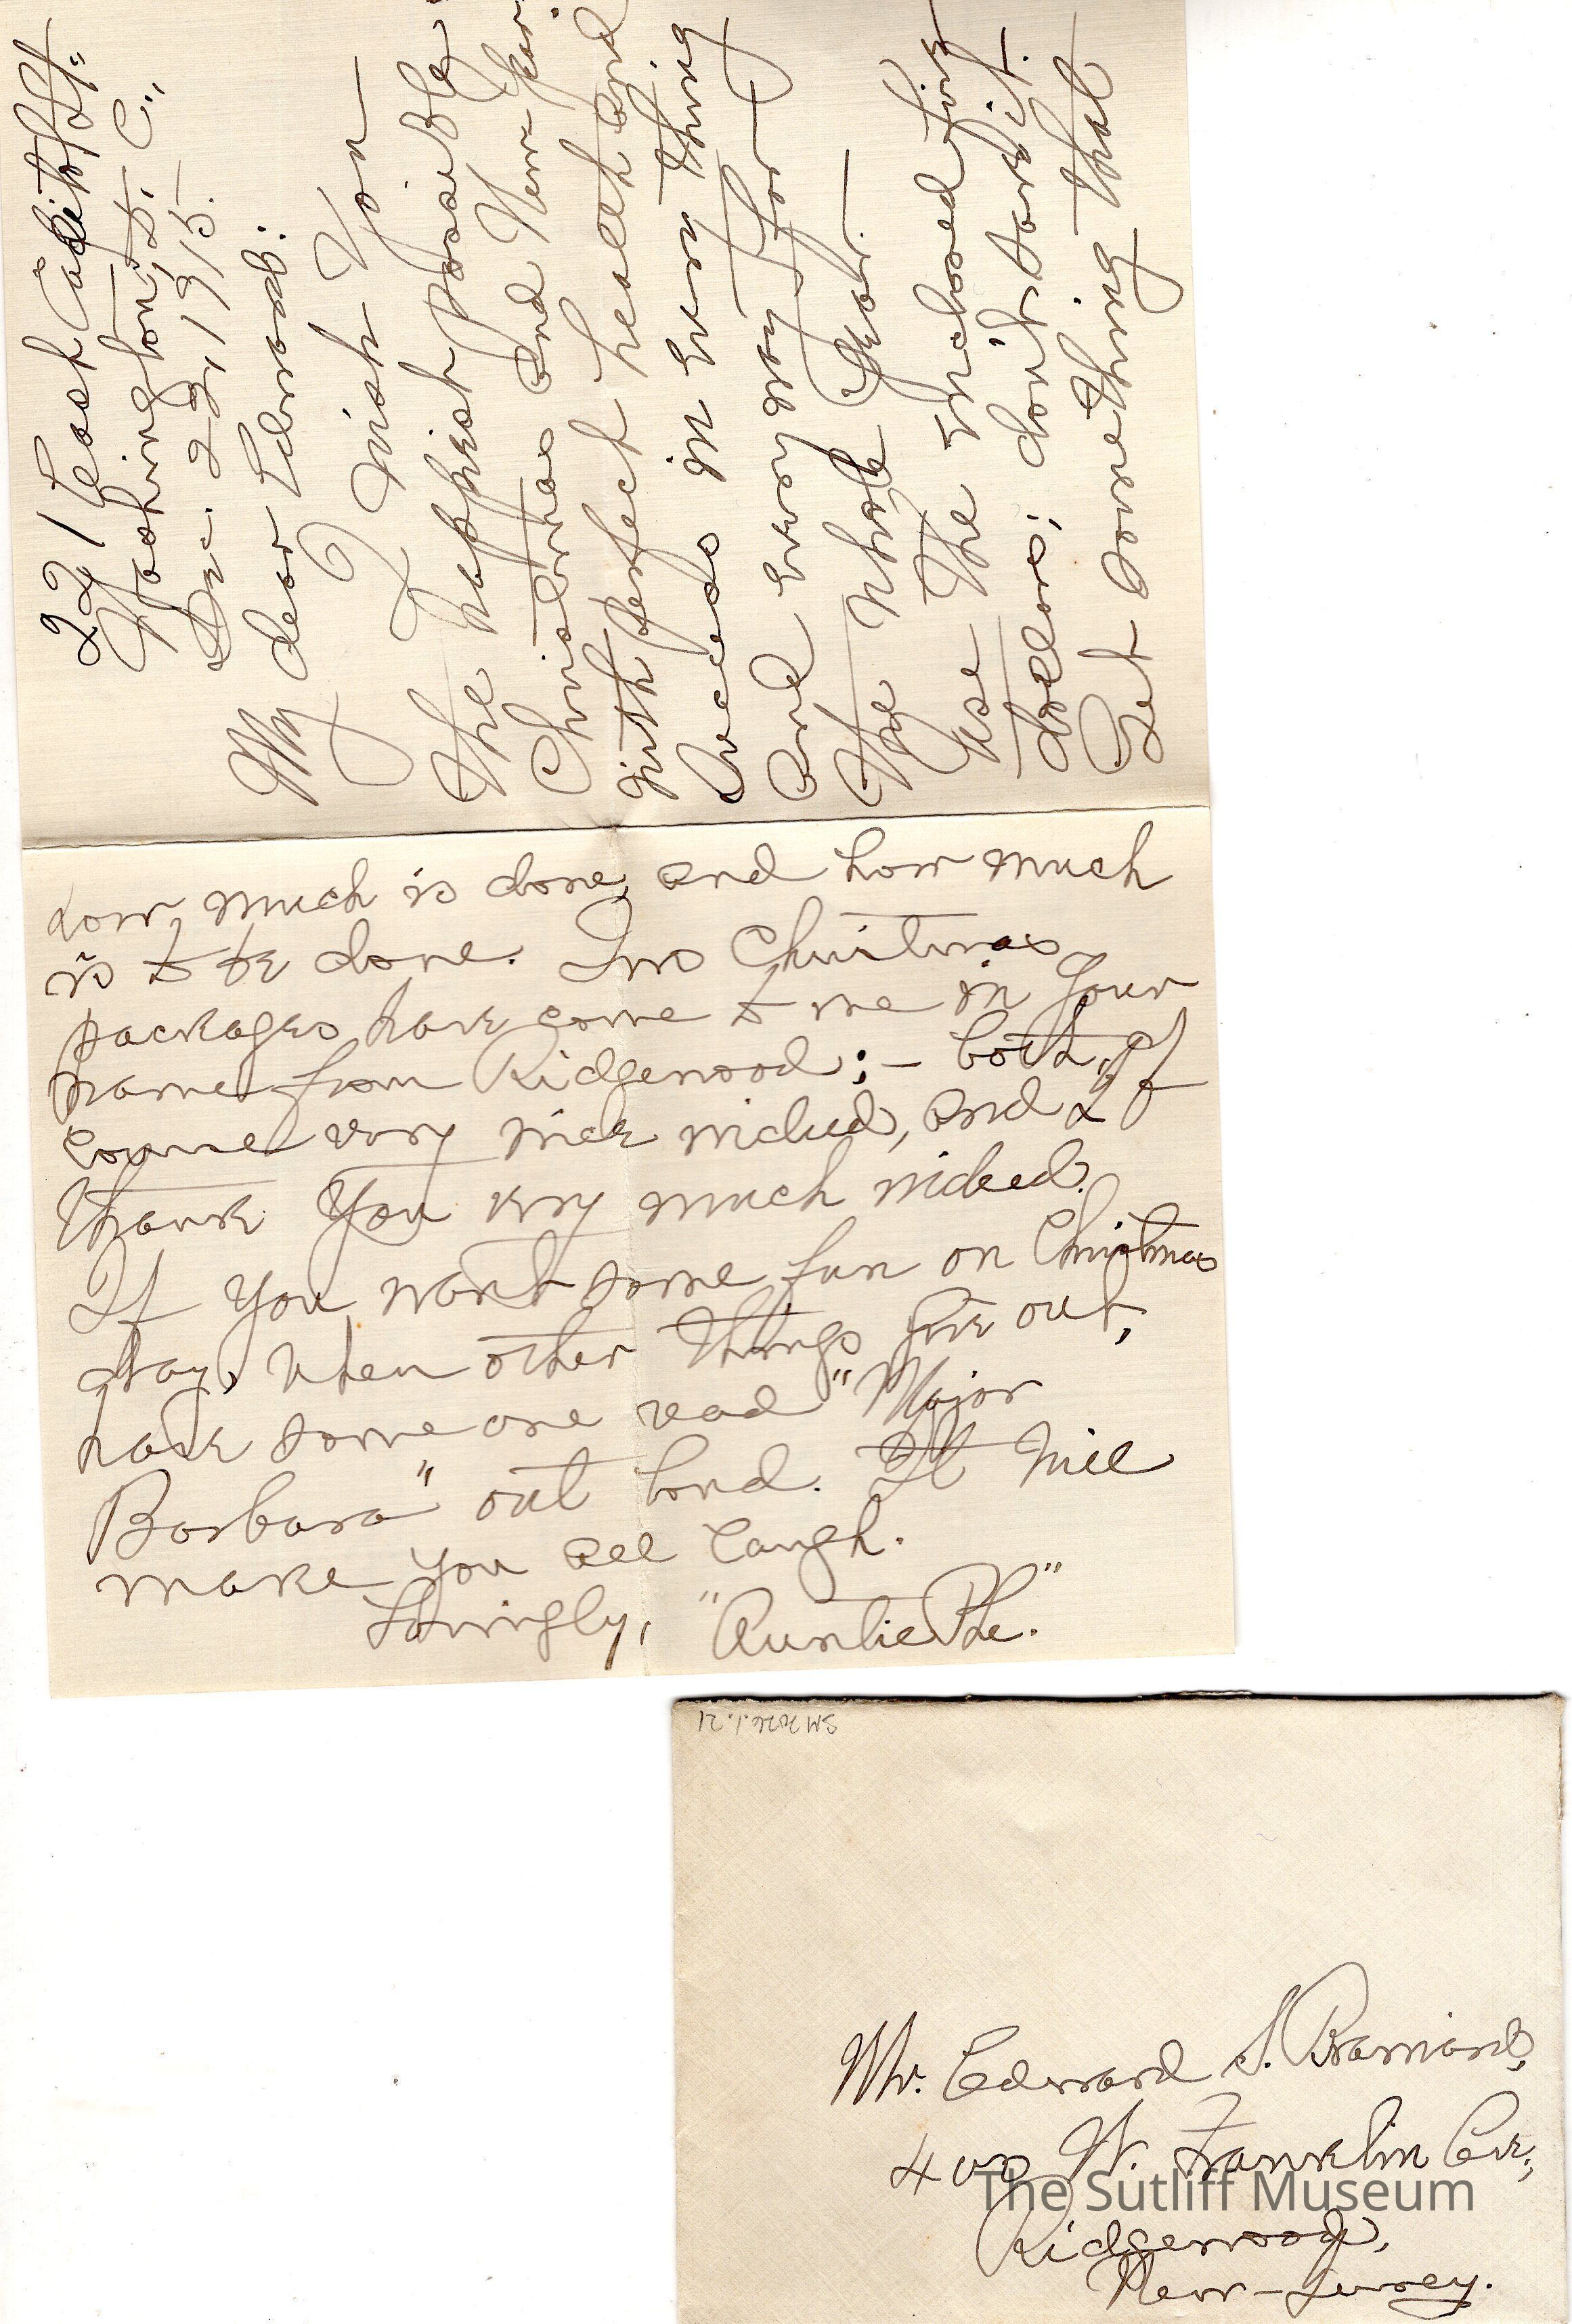 221 East Capitol St.
Washington, D. C.,
Dec. 22, 1915.
My dear Edward:
I wish You
the happiest possible
Christmas and New Year
with perfect health and
success in every thing
and every way for
the whole Year.
Use the enclosed five
dollars; don't save it.
Get something that
how much is done, and how much
is to be done. Two Christmas
packages have come to me in your
name from Ridgewood; - both, of
course very nice indeed, and I
thank You very much indeed.
If You want some fun on Christmas
day, when other things give out,
have some one read "Major
Barbara" out loud. It will
make you all laugh.
Lovingly, "Auntie Phe."
SM2026.1.21
Mr. Edward S. Brainard,
400 W. Franklin Ave.,
Ridgewood,
New-Jersey.
The Sutliff Museum